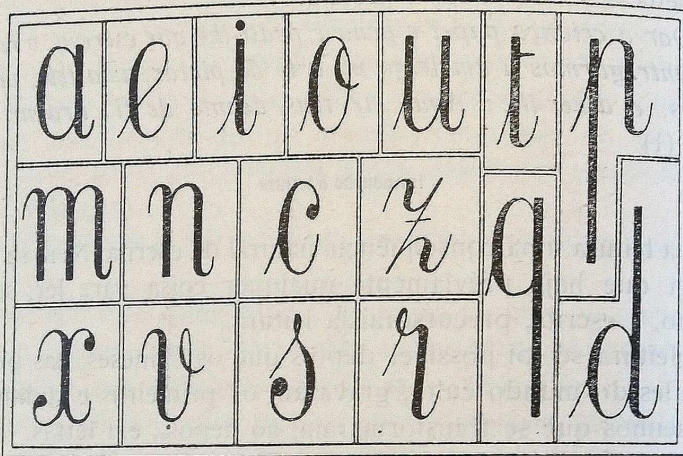 a e i o u t p
m n c z q
x v s r d